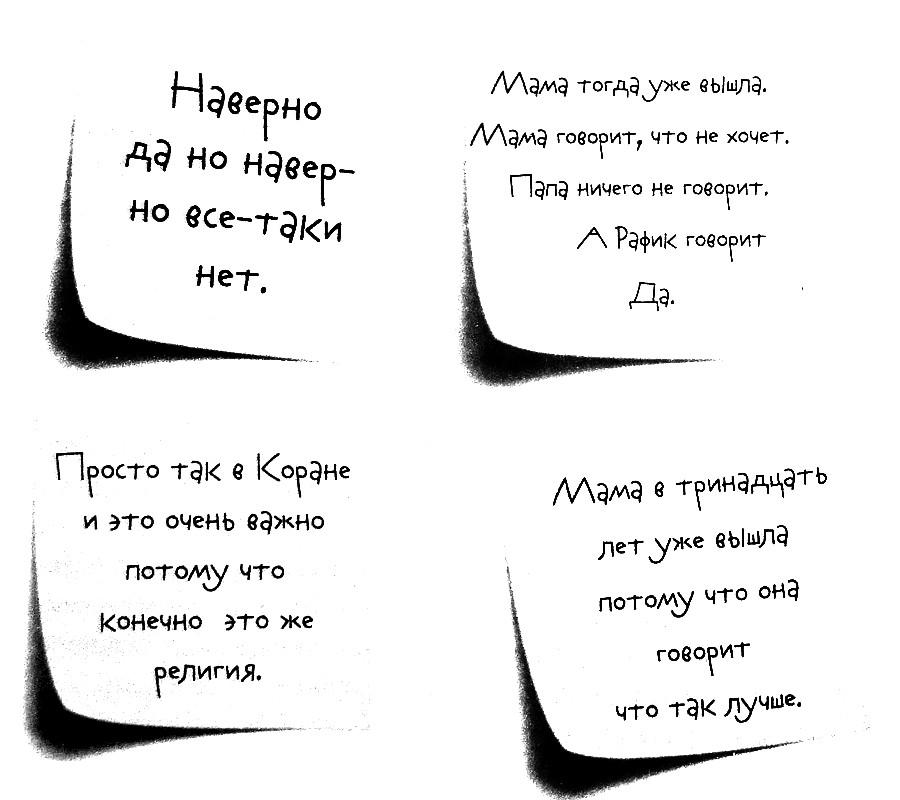 Наверно
да но навер-
но все-таки
нет.
Мама тогда уже вышла.
Мама говорит, что не хочет.
Папа ничего не говорит.
А Рафик говорит
Да.
Просто так в Коране
и это очень важно
потому что
конечно это же
религия.
Мама в тринадцать
лет уже вышла
потому что она
говорит
что так лучше.